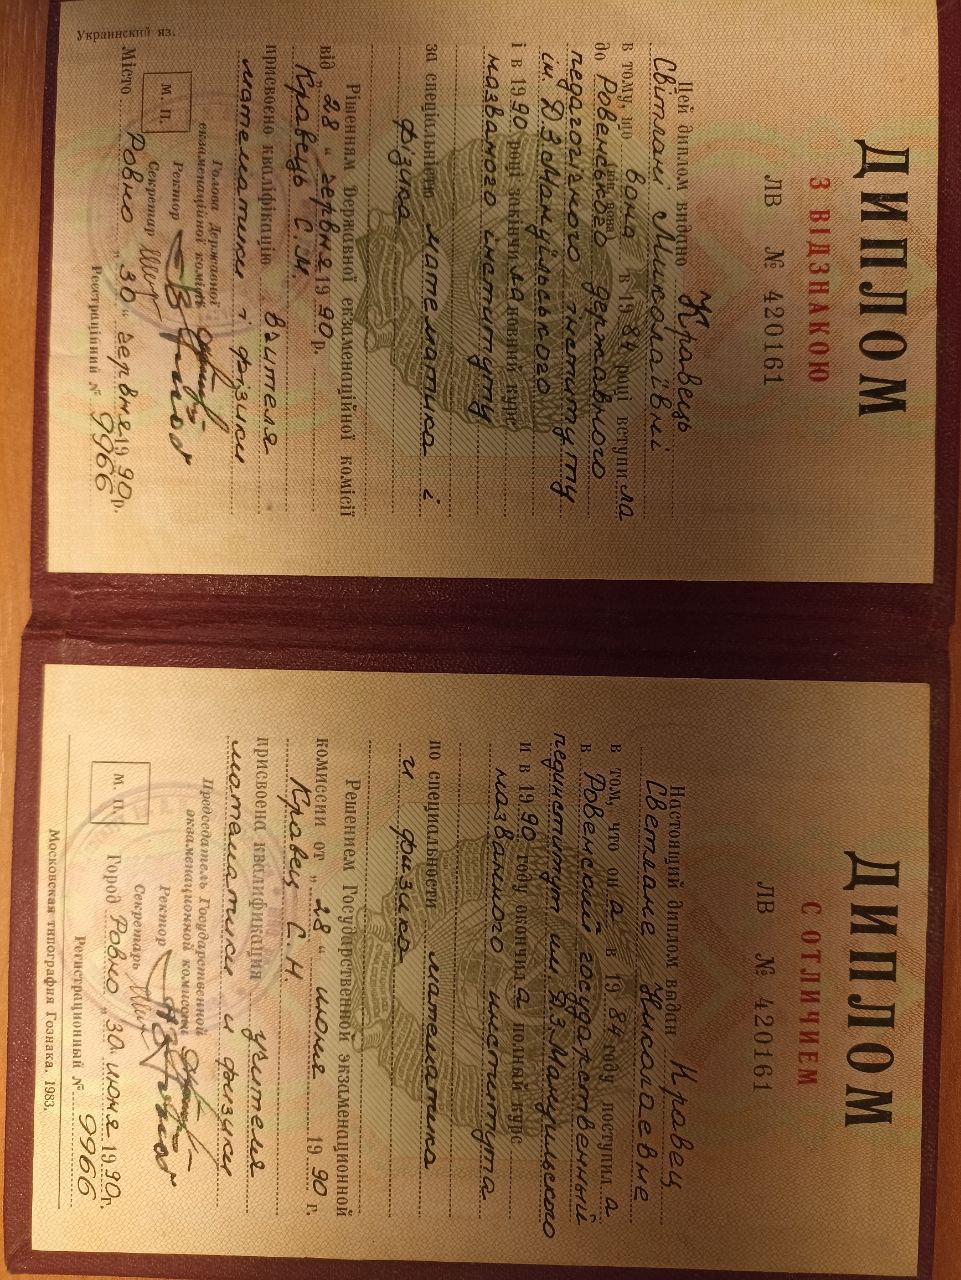 ДИПЛОМ
З ВІДЗНАКОЮ
ЛВ № 420161
Цей диплом видано Кравець
Світлані Миколаївні
в тому, що вона в 19 84 році вступи ла
до Ровенського державного
педагогічного інституту
ім. Д.З. Мануїльського
і в 19 90 році закінчи ла повний курс
названого інституту
за спеціальністю математика і
фізика
Рішенням Державної екзаменаційної комісії
від „ 28 “ червня 19 90 р.
Кравець С.М.
присвоєно кваліфікацію вчителя
математики і фізики
Голова Державної
екзаменаційної комісії
М. П.
Ректор
Секретар
Місто Ровно „ 30 “ червня 19 90 р.
Реєстраційний № 9966
Украинский яз.
ДИПЛОМ
С ОТЛИЧИЕМ
ЛВ № 420161
Настоящий диплом выдан Кравец
Светлане Николаевне
в том, что он а в 19 84 году поступил а
в Ровенский государственный
пединститут им. Д.З. Мануильского
и в 19 90 году окончил а полный курс
названного института
по специальности математика
и физика
Решением Государственной экзаменационной
комиссии от „ 28 “ июня 19 90 г.
Кравец С.Н.
присвоена квалификация учителя
математики и физики
Председатель Государственной
экзаменационной комиссии
М. П.
Ректор
Секретарь
Город Ровно „ 30 “ июня 19 90 г.
Регистрационный № 9966
Московская типография Гознака, 1983.